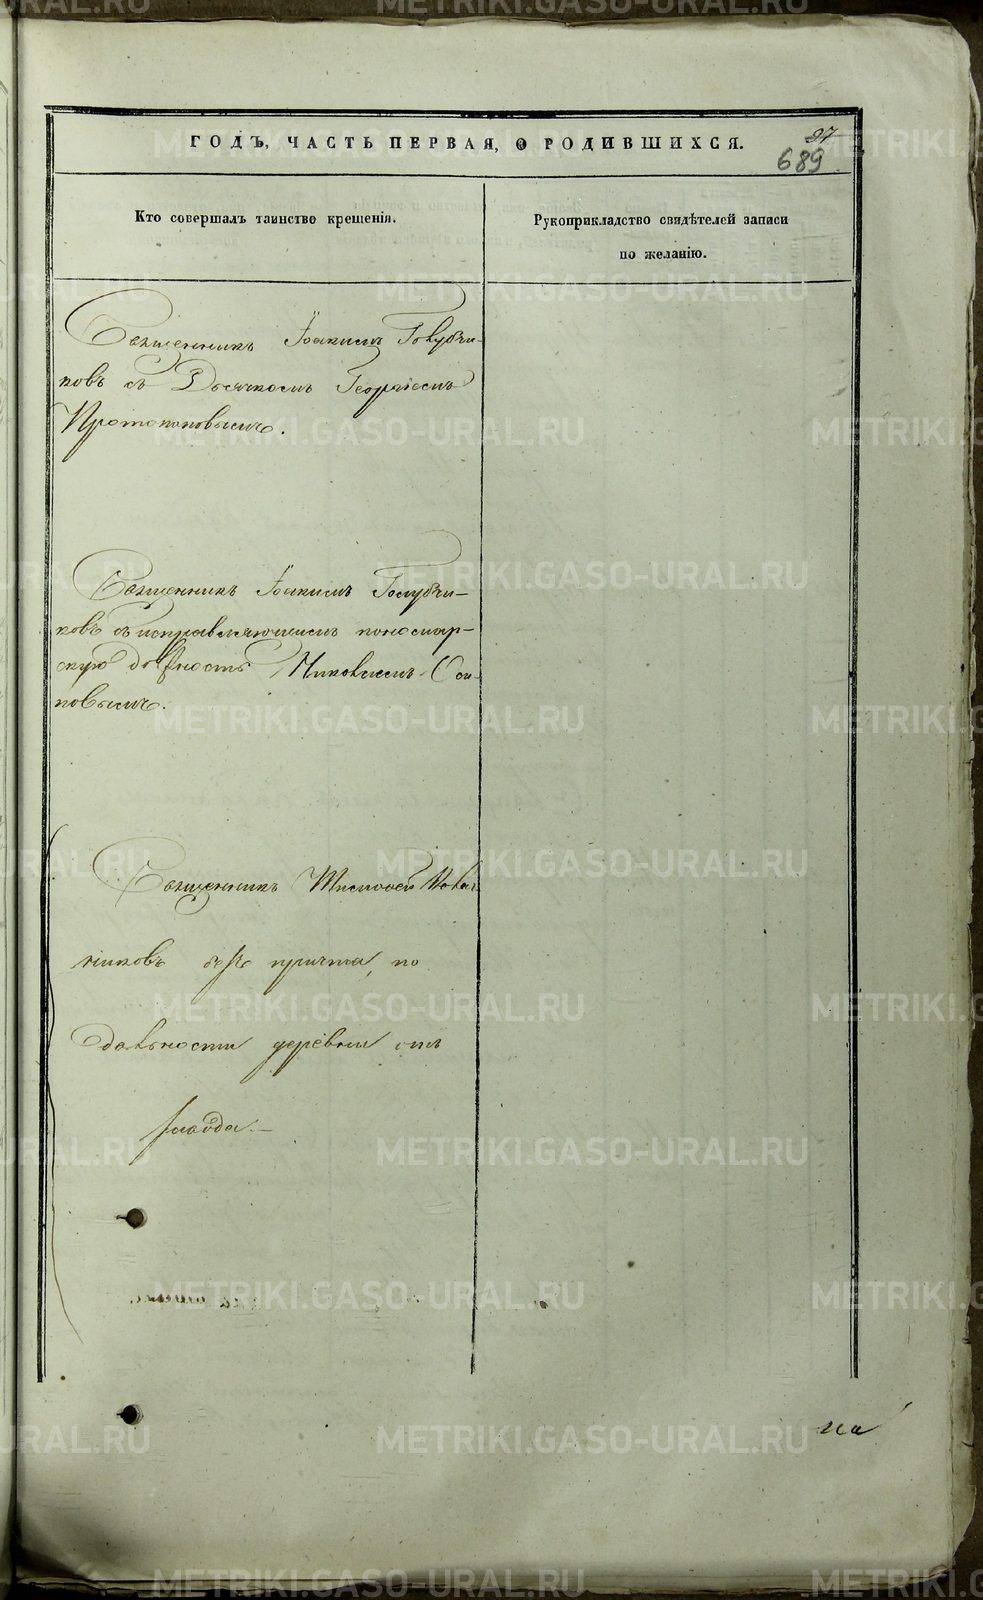 ГОДЪ, ЧАСТЬ ПЕРВАЯ, О РОДИВШИХСЯ.
97
689
Кто совершалъ таинство крещенія.
Рукоприкладство свидѣтелей записи
по желанію.
Священникъ Іоакимъ Голубчи-
ковъ съ Дьячкомъ Георгіемъ
Протопоповымъ.
Священникъ Іоакимъ Голубчи-
ковъ съ исправляющимъ пономар-
скую должность Николаемъ Оси-
повымъ.
Священникъ Тимофей
никовъ безъ причта, по
дальности деревни отъ
завода.
на
METRIKI.GASO-URAL.RU